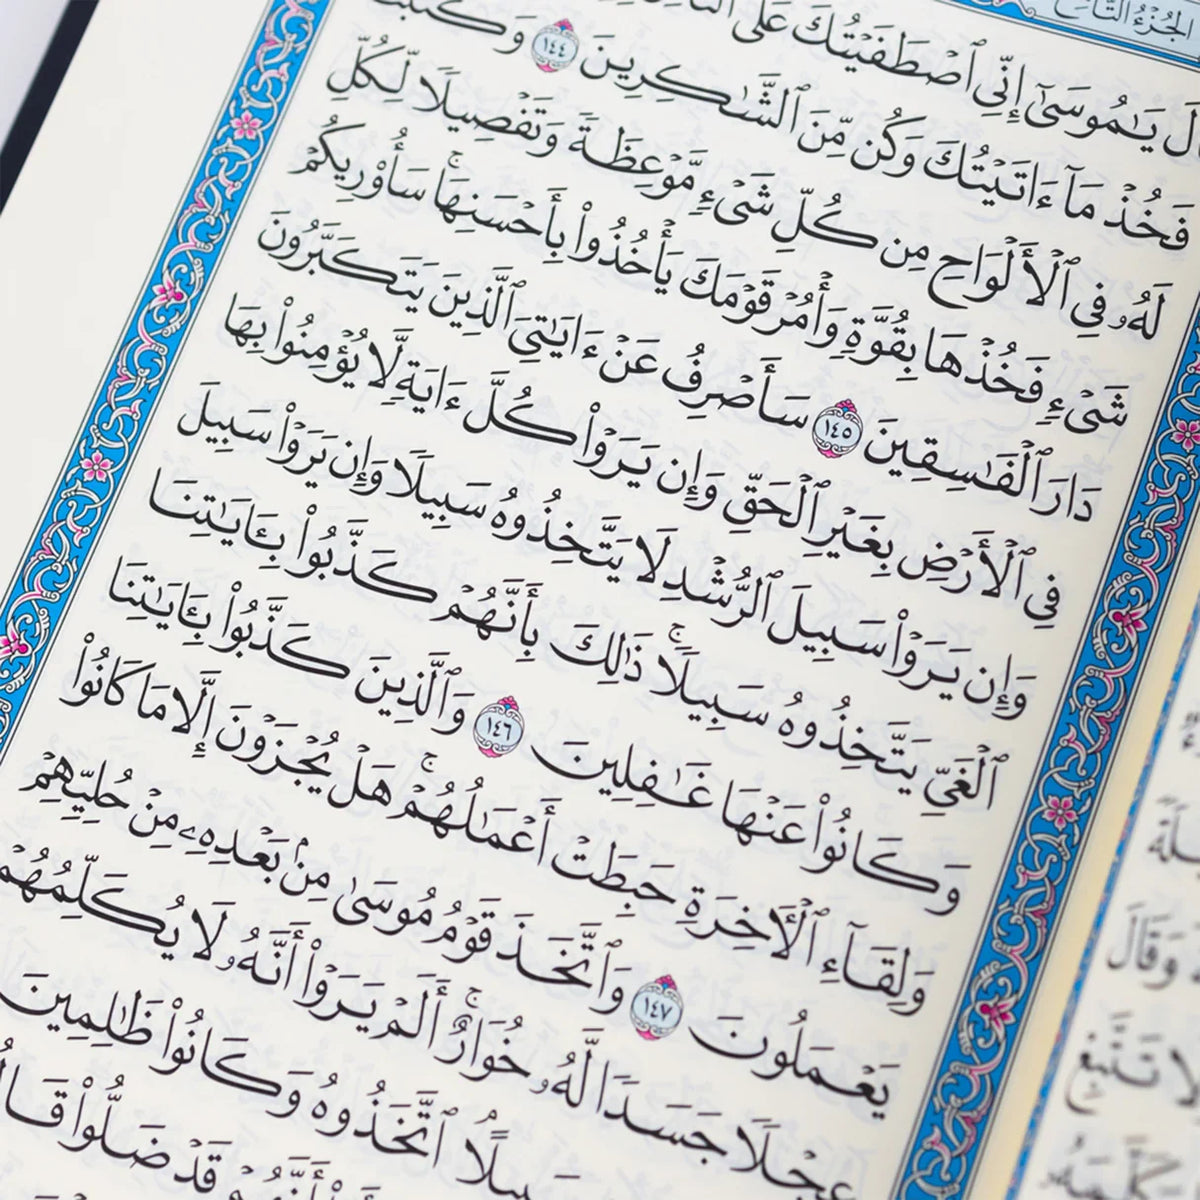 الجزء التاسع
قَالَ يَٰمُوسَىٰٓ إِنِّى ٱصۡطَفَيۡتُكَ عَلَى
فَخُذۡ مَآ ءَاتَيۡتُكَ وَكُن مِّنَ ٱلشَّٰكِرِينَ ١٤٤ وَكَتَبۡنَا
لَهُۥ فِى ٱلۡأَلۡوَاحِ مِن كُلِّ شَىۡءٖ مَّوۡعِظَةٗ وَتَفۡصِيلٗا لِّكُلِّ
شَىۡءٖ فَخُذۡهَا بِقُوَّةٖ وَأۡمُرۡ قَوۡمَكَ يَأۡخُذُواْ بِأَحۡسَنِهَاۚ سَأُوْرِيكُمۡ
دَارَ ٱلۡفَٰسِقِينَ ١٤٥ سَأَصۡرِفُ عَنۡ ءَايَٰتِىَ ٱلَّذِينَ يَتَكَبَّرُونَ
فِى ٱلۡأَرۡضِ بِغَيۡرِ ٱلۡحَقِّ وَإِن يَرَوۡاْ كُلَّ ءَايَةٖ لَّا يُؤۡمِنُواْ بِهَا
وَإِن يَرَوۡاْ سَبِيلَ ٱلرُّشۡدِ لَا يَتَّخِذُوهُ سَبِيلٗا وَإِن يَرَوۡاْ سَبِيلَ
ٱلۡغَىِّ يَتَّخِذُوهُ سَبِيلٗاۚ ذَٰلِكَ بِأَنَّهُمۡ كَذَّبُواْ بِـَٔايَٰتِنَا
وَكَانُواْ عَنۡهَا غَٰفِلِينَ ١٤٦ وَٱلَّذِينَ كَذَّبُواْ بِـَٔايَٰتِنَا
وَلِقَآءِ ٱلۡأٓخِرَةِ حَبِطَتۡ أَعۡمَٰلُهُمۡۚ هَلۡ يُجۡزَوۡنَ إِلَّا مَا كَانُواْ
يَعۡمَلُونَ ١٤٧ وَٱتَّخَذَ قَوۡمُ مُوسَىٰ مِنۢ بَعۡدِهِۦ مِنۡ حُلِيِّهِمۡ
عِجۡلٗا جَسَدٗا لَّهُۥ خُوَارٌۚ أَلَمۡ يَرَوۡاْ أَنَّهُۥ لَا يُكَلِّمُهُمۡ
سَبِيلًاۘ ٱتَّخَذُوهُ وَكَانُواْ ظَٰلِمِينَ
أَنَّهُمۡ قَدۡ ضَلُّواْ قَالُواْ
وَقَالَ